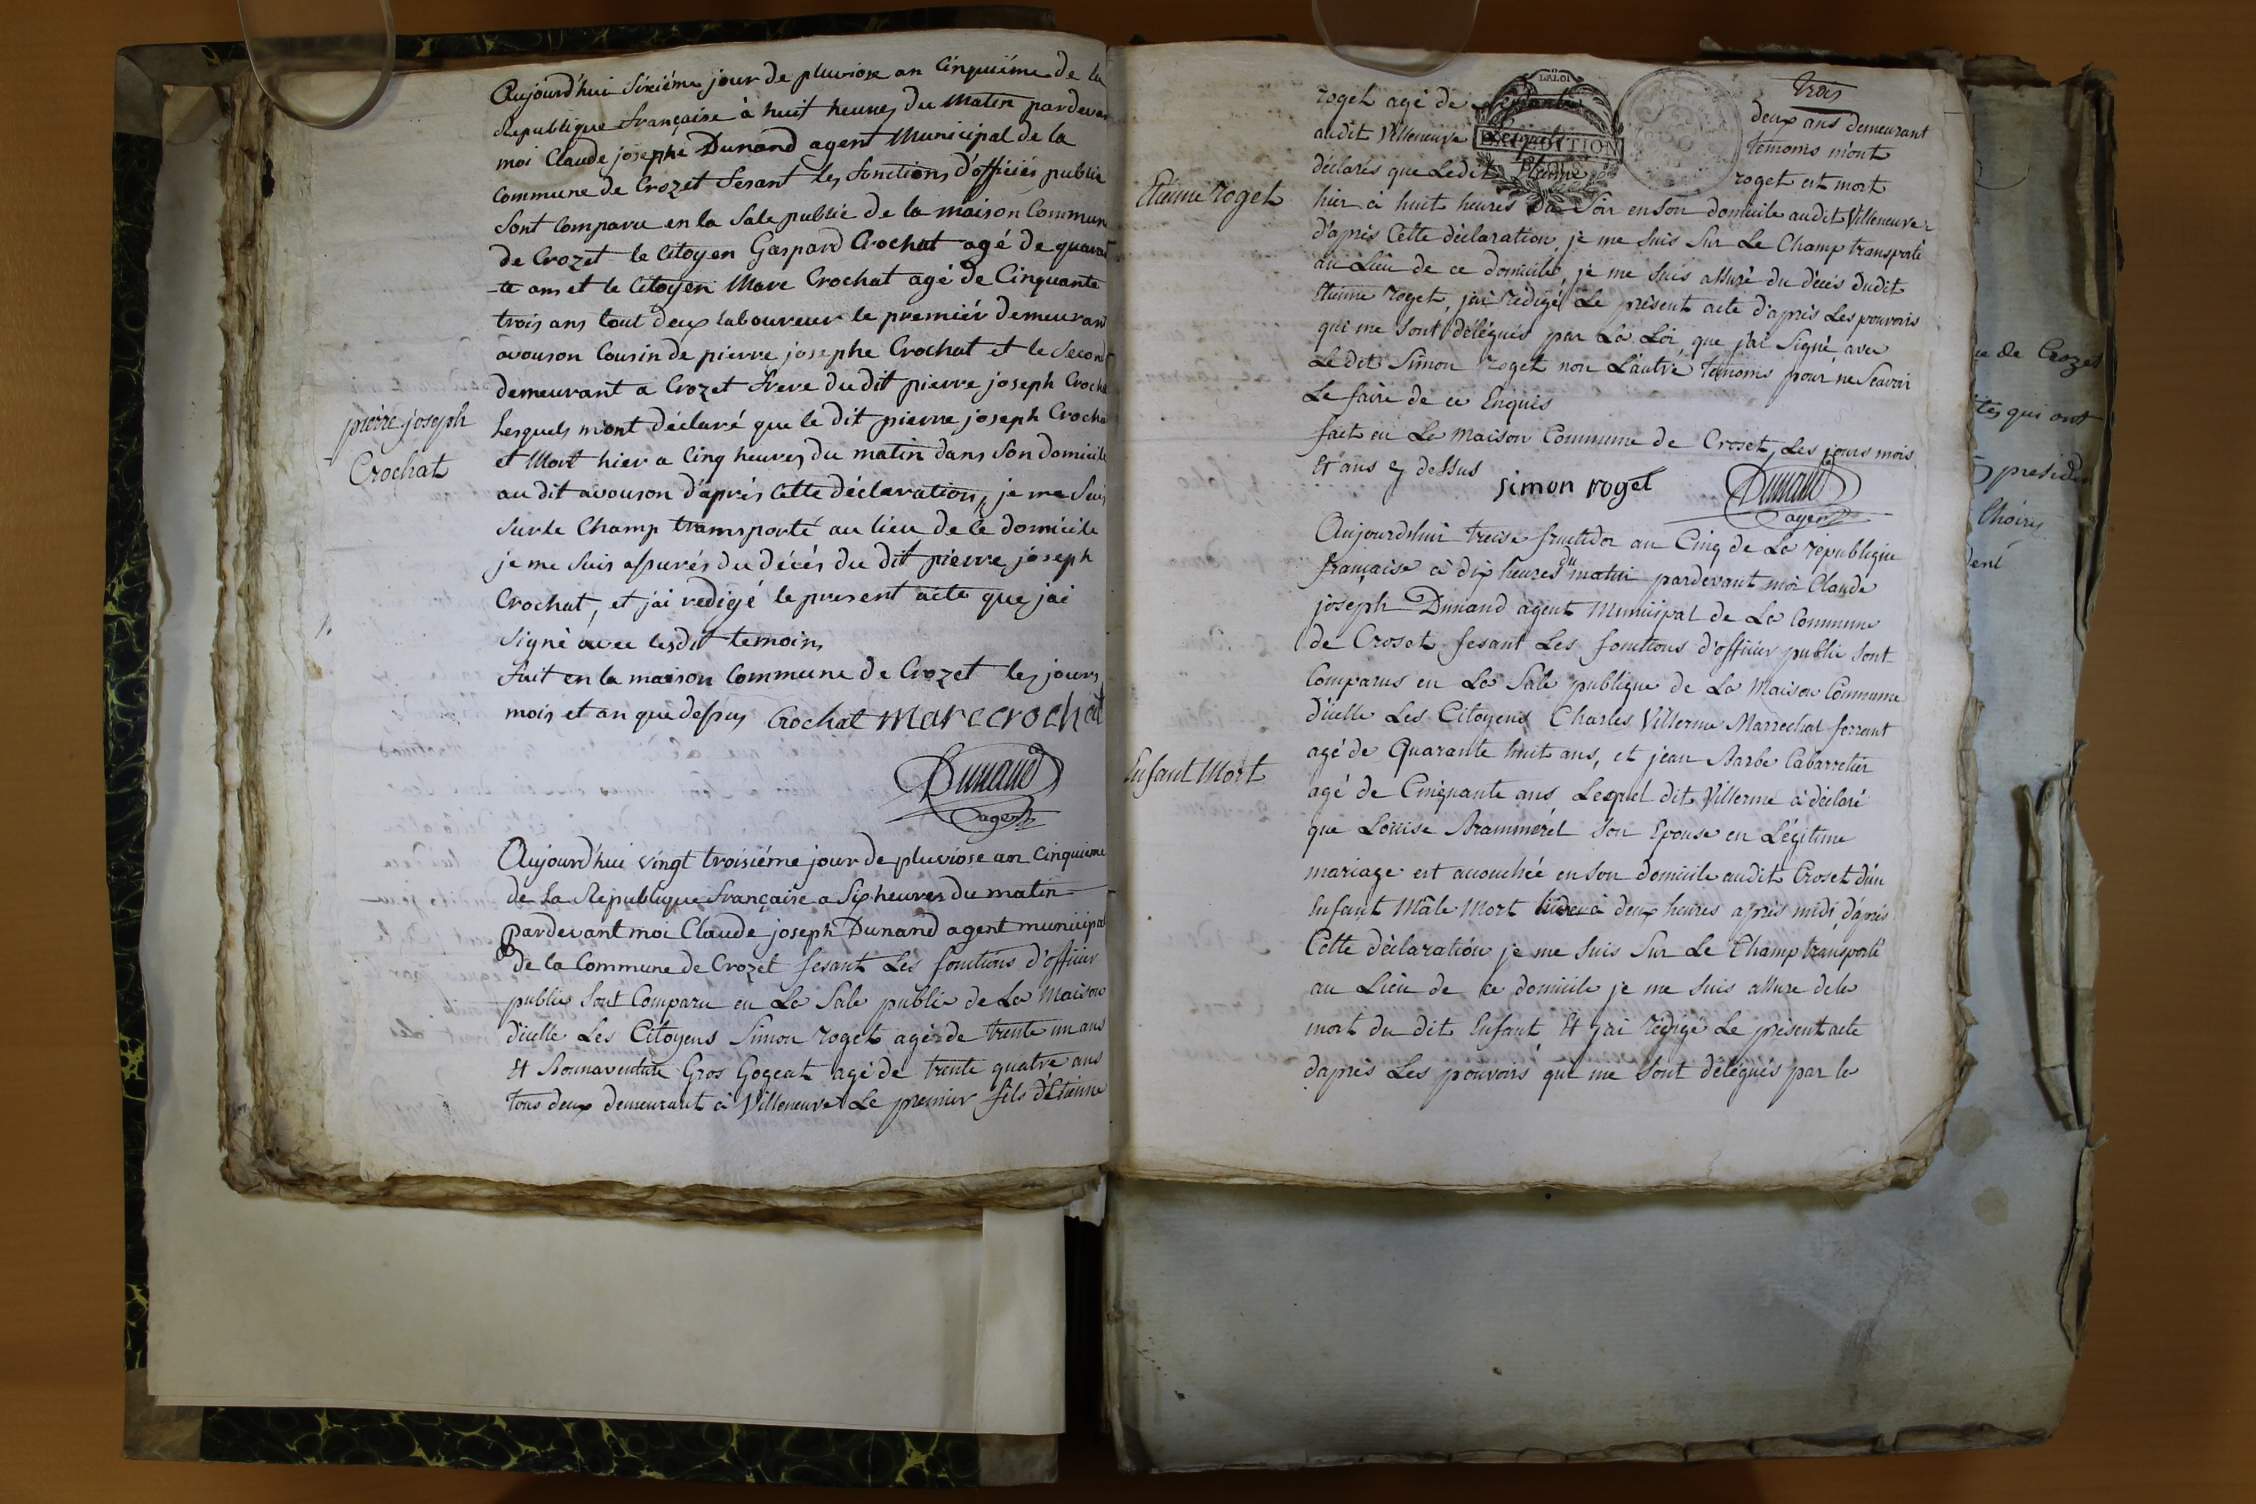 Aujourd'hui Sixiéme jour de pluviose an Cinquiéme de la
Republique française à huit heures du Matin pardevan
moi Claude josephe Dunand agent Municipal de la
Commune de Crozet fesant les fonctions d'officiér public
Sont Comparu en la Sale public de la maison Commun
de Crozet le Citoyen Gaspard Crochat agé de quaran
-te ans et le Citoyen Marc Crochat agé de Cinquante
trois ans tout deux laboureur le premiér demeuran
avouson Cousin de pierre josephe Crochat et le Second
demeurant a Crozet frere du dit pierre joseph Crocha
pierre joseph
Crochat
Lesquels m'ont déclaré que le dit pierre joseph Crocha
et Mort hier a Cinq heures du matin dans Son domicile
au dit avouson d'aprés Cette déclaration, je me Suis
Sur le Champ transporté au lieu de Ce domicile
je me Suis assurés du décés du dit pierre joseph
Crochat, et j'ai redigé le present acte que j'ai
Signè avec lesdit temoins
fait en la maison Commune de Crozet les jours
mois et an que dessus Crochat marc crochat
Dunand
agent
Aujourd'hui vingt troisiéme jour de pluviose an Cinquieme
de la Republique française a Six heures du matin
pardevant moi Claude joseph Dunand agent municipal
de la Commune de Crozet fesant Les fonctions d'officier
public Sont Comparu en La Sale public de La Maison
d'icelle Les Citoyens Simon roget agés de trente un ans
Et Bonnaventure Gros Gogeat agé de trente quatre ans
tous deux demeurant à Villeneuve Le premier fils d'Etienne
trois
roget agé de deux ans demeurant
audit Villeneuve temoins m'ont
déclarés que Ledit Etienne roget est mort
LA LOI
EXPEDITION
Etienne roget
hier à huit heures du Soir en Son domicile audit Villeneuve
d'aprés Cette déclaration, je me Suis Sur Le Champ transporté
au Lieu de ce domicile, je me Suis assuré du décés dudit
Etienne roget, j'ai rédigé Le présent acte d'aprés Les pouvoirs
qui me Sont délégués par La Loi, que j'ai Signé avec
Le dit Simon roget non L'autre temoins pour ne Scavoir
Le faire de ce Enquis
fait en La Maison Commune de Croset, Les jours mois
Et ans cy dessus simon roget Dunand
agent
Aujourdhui treise fructidor an Cinq de La république
française à dix heures du matin pardevant moi Claude
joseph Dunand agent Municipal de La Commune
de Croset fesant Les fonctions d'officier public Sont
Comparus en La Sale publique de La Maison Commune
d'icelle Les Citoyens Charles Villerme Marrechal ferrant
agé de Quarante huit ans, et jean Barbe Cabarretier
Enfant Mort
agé de Cinquante ans Lequel dit Villerme à déclaré
que Louise Brammerel Son Epouse en Légitime
mariage est accouchée en Son domicile audit Croset d'un
Enfant Mâle Mort à deux heures après midi, d'aprés
Cette déclaration je me Suis Sur Le Champ transporté
au Lieu de ce domicile je me Suis assure de la
mort du dit Enfant, Et j'ai rédigé Le présent acte
d'aprés Les pouvoirs qui me Sont délégués par la
de Crozet
qui ont